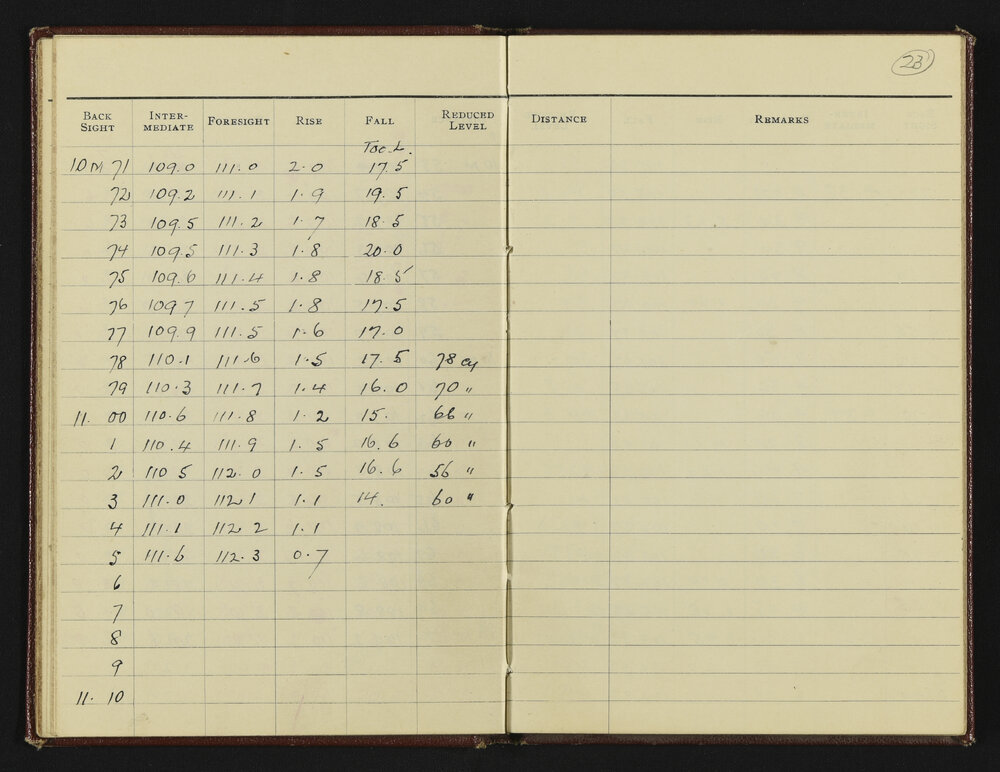 23
BACK SIGHT INTER-MEDIATE FORESIGHT RISE FALL REDUCED LEVEL DISTANCE REMARKS
Toe L.
10 M 71 109.0 111.0 2.0 17.5
72 109.2 111.1 1.9 19.5
73 109.5 111.2 1.7 18.5
74 109.5 111.3 1.8 20.0
75 109.6 111.4 1.8 18.5
76 109.7 111.5 1.8 17.5
77 109.9 111.5 1.6 17.0
78 110.1 111.6 1.5 17.5 78 cy
79 110.3 111.7 1.4 16.0 70 "
11. 00 110.6 111.8 1.2 15. 66 "
1 110.4 111.9 1.5 16.6 60 "
2 110 5 112.0 1.5 16.6 56 "
3 111.0 112 1 1.1 14. 60 "
4 111.1 112 2 1.1
5 111.6 112.3 0.7
6
7
8
9
11. 10